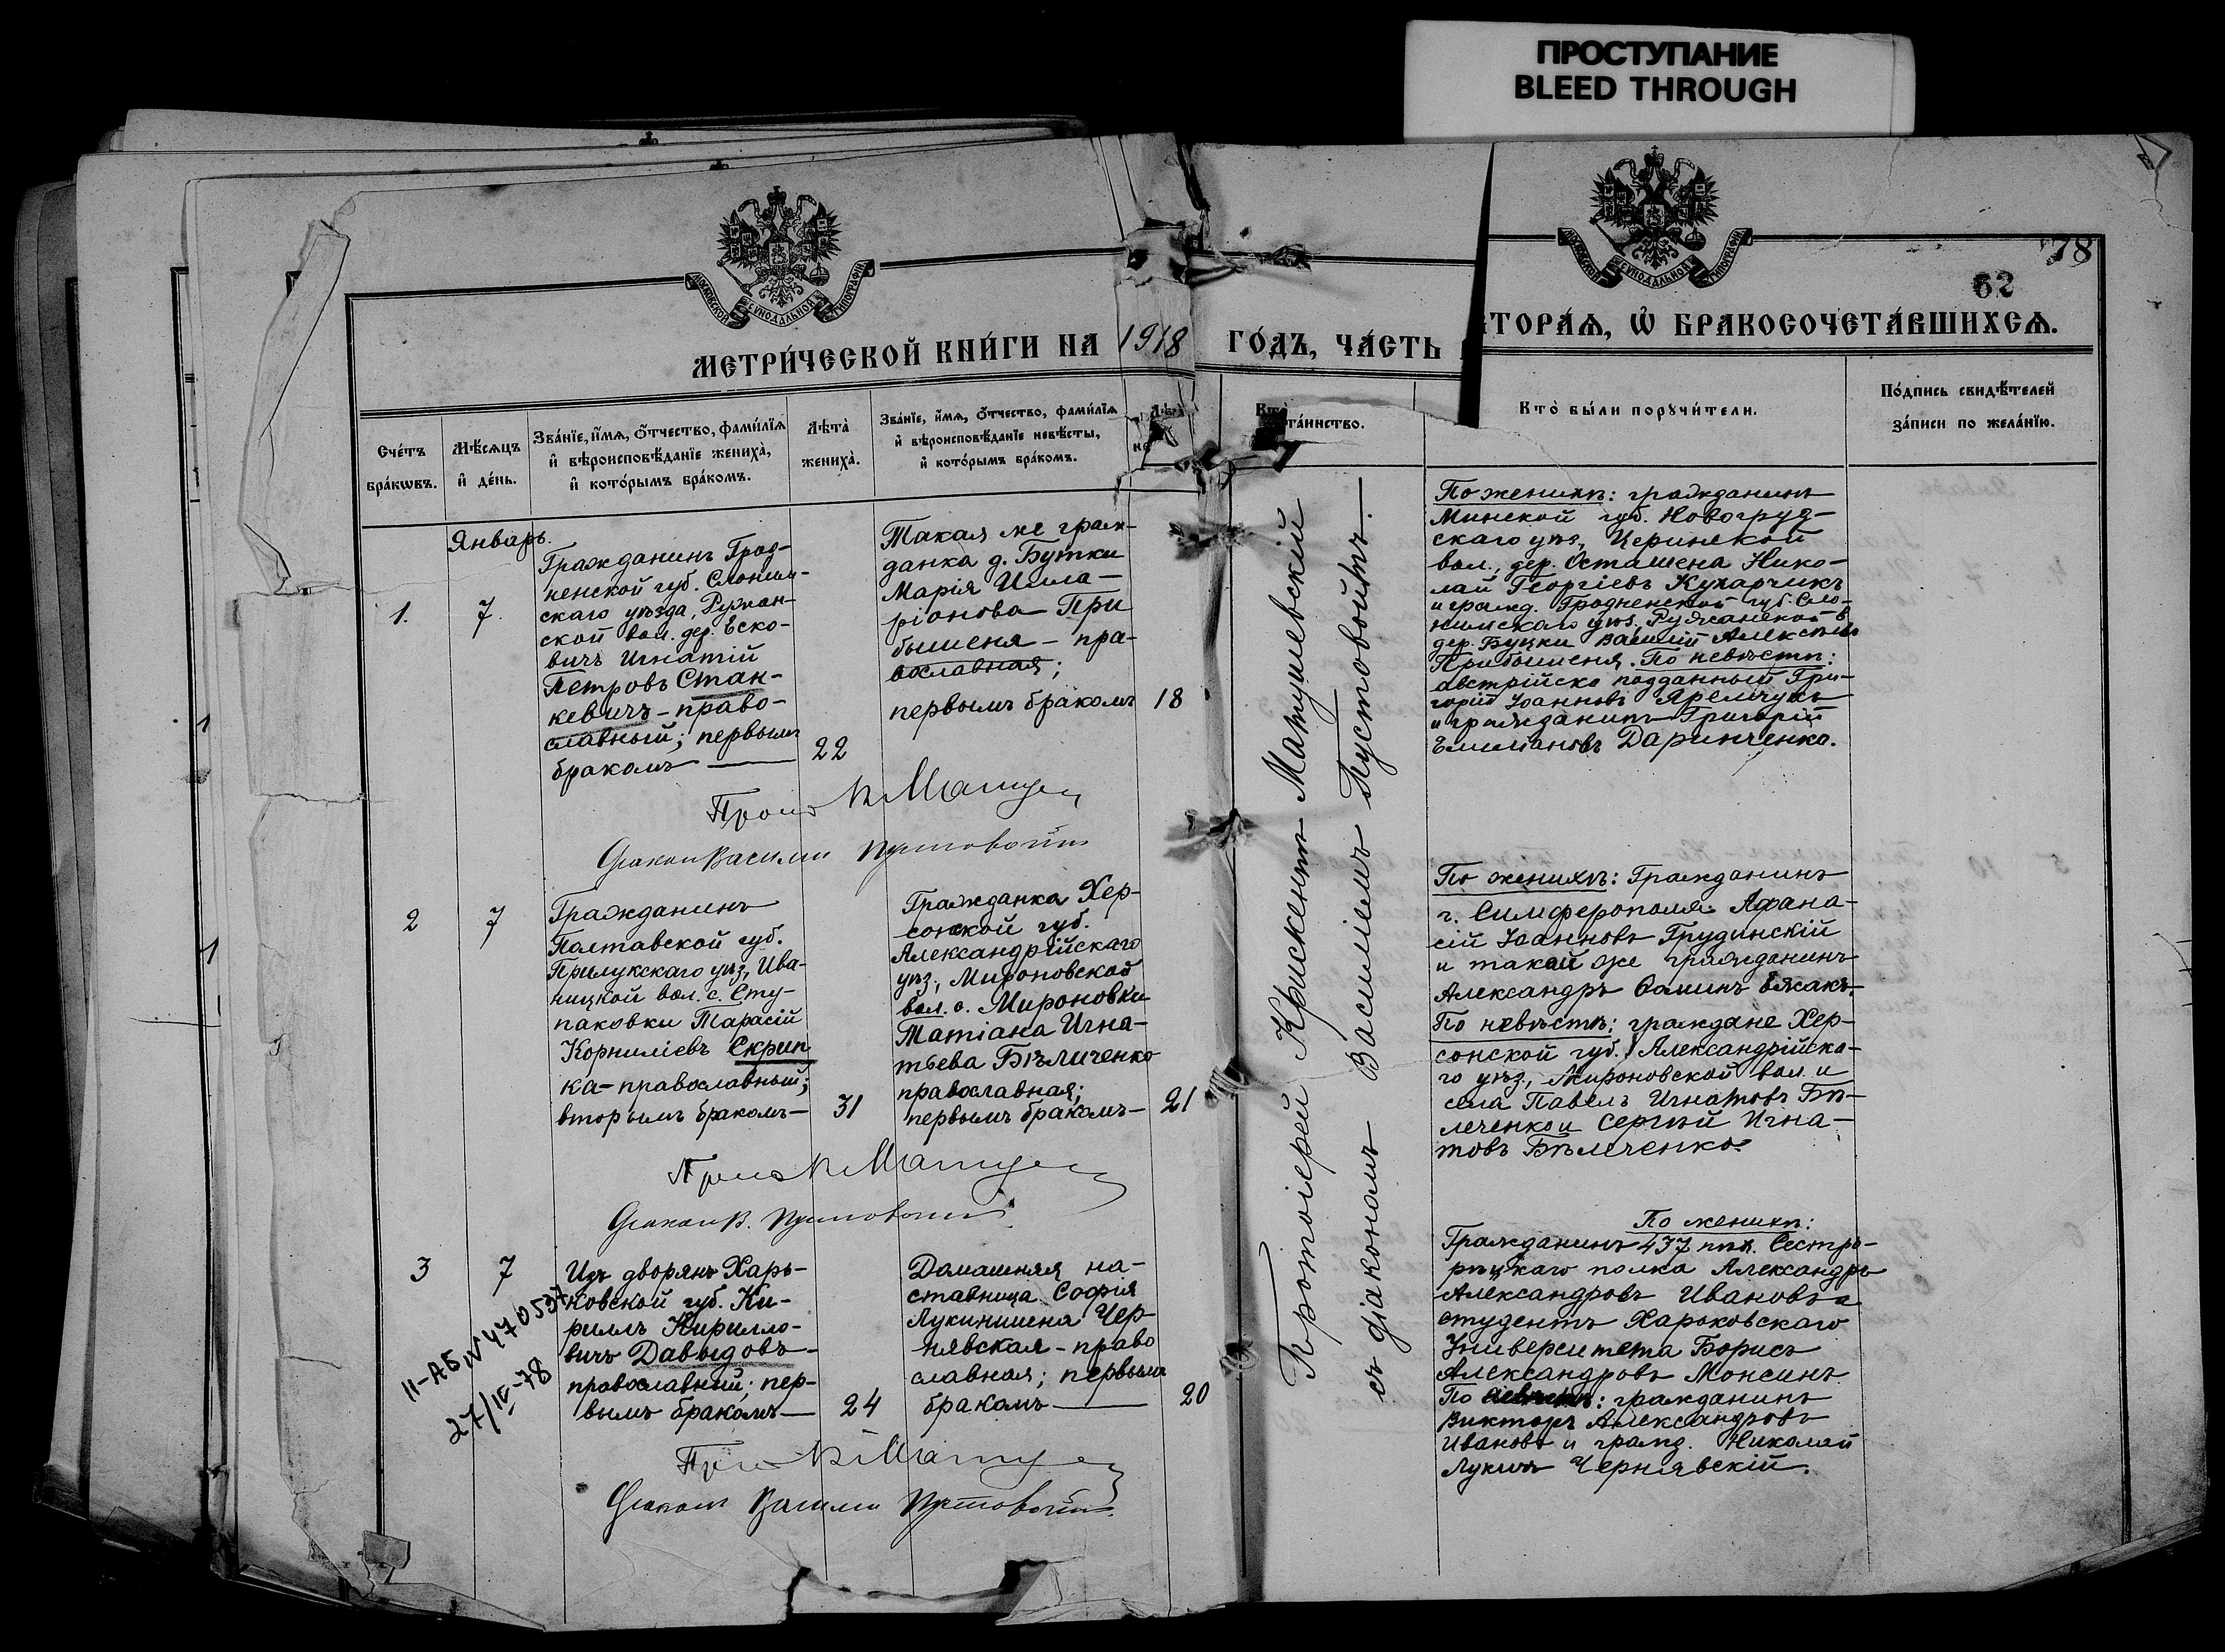 ПРОСТУПАНИЕ
BLEED THROUGH
МОСКОВСКОЙ СѴНОДАЛЬНОЙ ТИПОГРАФІИ
МОСКОВСКОЙ СѴНОДАЛЬНОЙ ТИПОГРАФІИ
78
62
МЕТРИ́ЧЕСКОЙ КНИ́ГИ НА 1918 ГО́ДЪ, ЧА́СТЬ
ТОРА́Ѧ, Ѽ БРАКОСОЧЕТА́ВШИХСѦ.
Сче́тъ
бра́кѡвъ.
Мѣ́сѧцъ
и҆ де́нь.
Зва́нїе, и҆́мѧ, ѻ҆́тчество, фами́лїѧ
и҆ вѣроисповѣ́данїе жениха̀,
и҆ кото́рымъ бра́комъ.
Лѣта̀
жениха̀.
Зва́нїе, и҆́мѧ, ѻ҆́тчество, фами́лїѧ
и҆ вѣроисповѣ́данїе невѣ́сты,
и҆ кото́рымъ бра́комъ.
Лѣта̀
не
Кто̀
та́инство.
Кто̀ бы́ли порꙋчи́тели.
По́дпись свидѣ́телей
за́писи по жела́нїю.
Январь.
1.
7.
Гражданинъ Грод-
ненской губ. Слоним-
скаго уѣзда, Ружан-
ской вол. дер. Еско-
вичъ Игнатій
Петровъ Стан-
кевичъ – право-
славный; первымъ
бракомъ —
22
Такая же граж-
данка д. Бутки
Марія Илла-
ріонова При
бышеня – пра-
вославная;
первымъ бракомъ
18
По женихѣ: гражданинъ
Минской губ. Новогруд-
скаго уѣз., Церинской
вол., дер. Осташена Нико-
лай Георгіевъ Кухарчикъ
и гражд. Гродненской губ. Сло-
нимскаго уѣз., Ружанской в
дер. Буцки Василій Алексѣевъ
Прибышеня. По невѣстѣ:
австрійско подданный Гри-
горій Іоанновъ Яремчукъ
и гражданинъ Григорій
Емиліановъ Даринченко.
Прот К Матуш
Діаконъ Василий Пустовойтъ
2
7
Гражданинъ
Полтавской губ.
Прилукскаго уѣз., Ива-
ницкой вол. с. Сту-
паковки Тарасій
Корниліевъ Скрип
ка – православный;
вторымъ бракомъ —
31
Гражданка Хер-
сонской губ.
Александрійскаго
уѣз., Мироновской
вол. с. Мироновки
Татіана Игна-
тьева Бѣличенко
православная;
первымъ бракомъ —
21
По женихѣ: Гражданинъ
г. Симферополя Афана-
сій Іоанновъ Грудинскій
и такой же гражданинъ
Александръ
По невѣстѣ: граждане Хер-
сонской губ. Александрійска-
го уѣз., Мироновской вол. и
села Павелъ Игнатовъ Бѣ-
леченко и Сергѣй Игна-
товъ Бѣлеченко.
Прот К Матуш
Діаконъ В. Пустовойтъ
3
7
Изъ дворянъ Харь-
ковской губ. Ки-
риллъ Кирилло-
вичъ Давыдовъ —
православный; пер-
вымъ бракомъ —
24
Домашняя на-
ставница Софія
Лукинишена Чер-
нявская – право
славная; первымъ
бракомъ —
20
По женихѣ:
Гражданинъ 437 пѣх. Сестро-
рѣцкаго полка Александръ
Александровъ Ивановъ и
студентъ Харьковскаго
Университета Борисъ
Александровъ Монсинъ.
По невѣстѣ: гражданинъ
Викторъ Александровъ
Ивановъ и гражд. Николай
Лукинъ Чернявскій.
II-АБ № 470537
27/IV-78
Прот К Матуш
Діаконъ Василий Пустовойтъ
Протоіерей Крискентъ Матушевскій
съ діакономъ Василіемъ Пустовойтъ. —
1
1